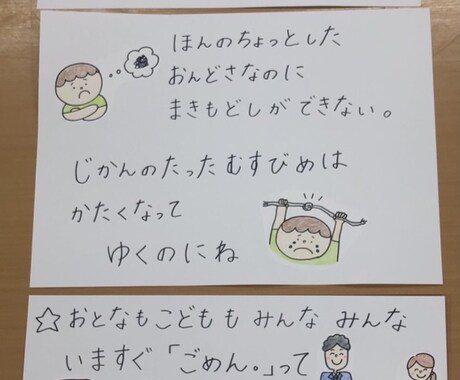 ほんのちょっとした
おんどさなのに
まきもどしができない。
じかんのたったむすびめは
かたくなって
ゆくのにね
☆おとなもこどももみんなみんな
いますぐ「ごめん。」って